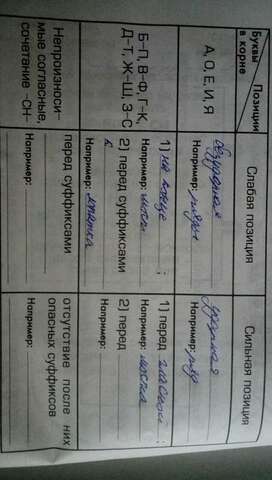 Позиции
Буквы
в корне
Слабая позиция
Сильная позиция
А, О, Е, И, Я
безударная
Например: ряды
ударная
Например: ряд
Б–П, В–Ф, Г–К,
Д–Т, Ж–Ш, З–С
1) на конце ;
Например:
2) перед суффиксами
к
Например:
1) перед гласной ;
Например:
2) перед
Например:
Непроизноси-
мые согласные,
сочетание -СН-
перед суффиксами
Например:
отсутствие после них
опасных суффиксов
Например: